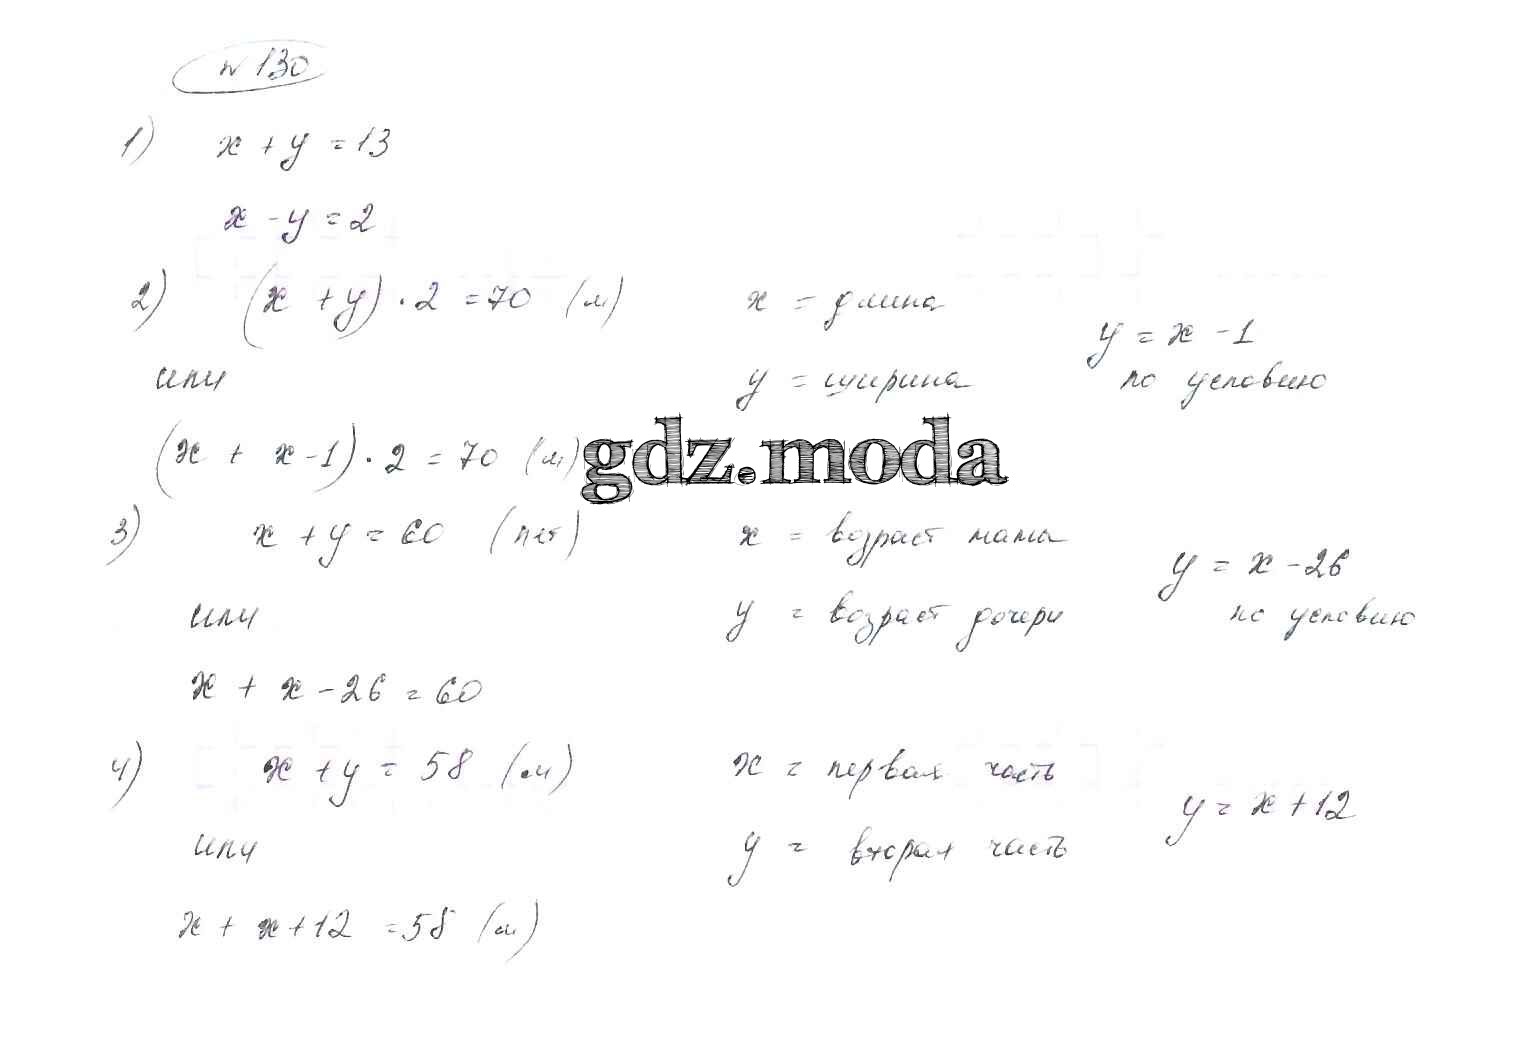 № 130
1) x + y = 13
x - y = 2
2) (x + y) · 2 = 70 (м) x = длина
y = x - 1
или y = ширина по условию
(x + x - 1) · 2 = 70 (м)
gdz.moda
3) x + y = 60 (лет) x = возраст мамы
y = x - 26
или y = возраст дочери по условию
x + x - 26 = 60
4) x + y = 58 (м) x = первая часть
y = x + 12
или y = вторая часть
x + x + 12 = 58 (м)